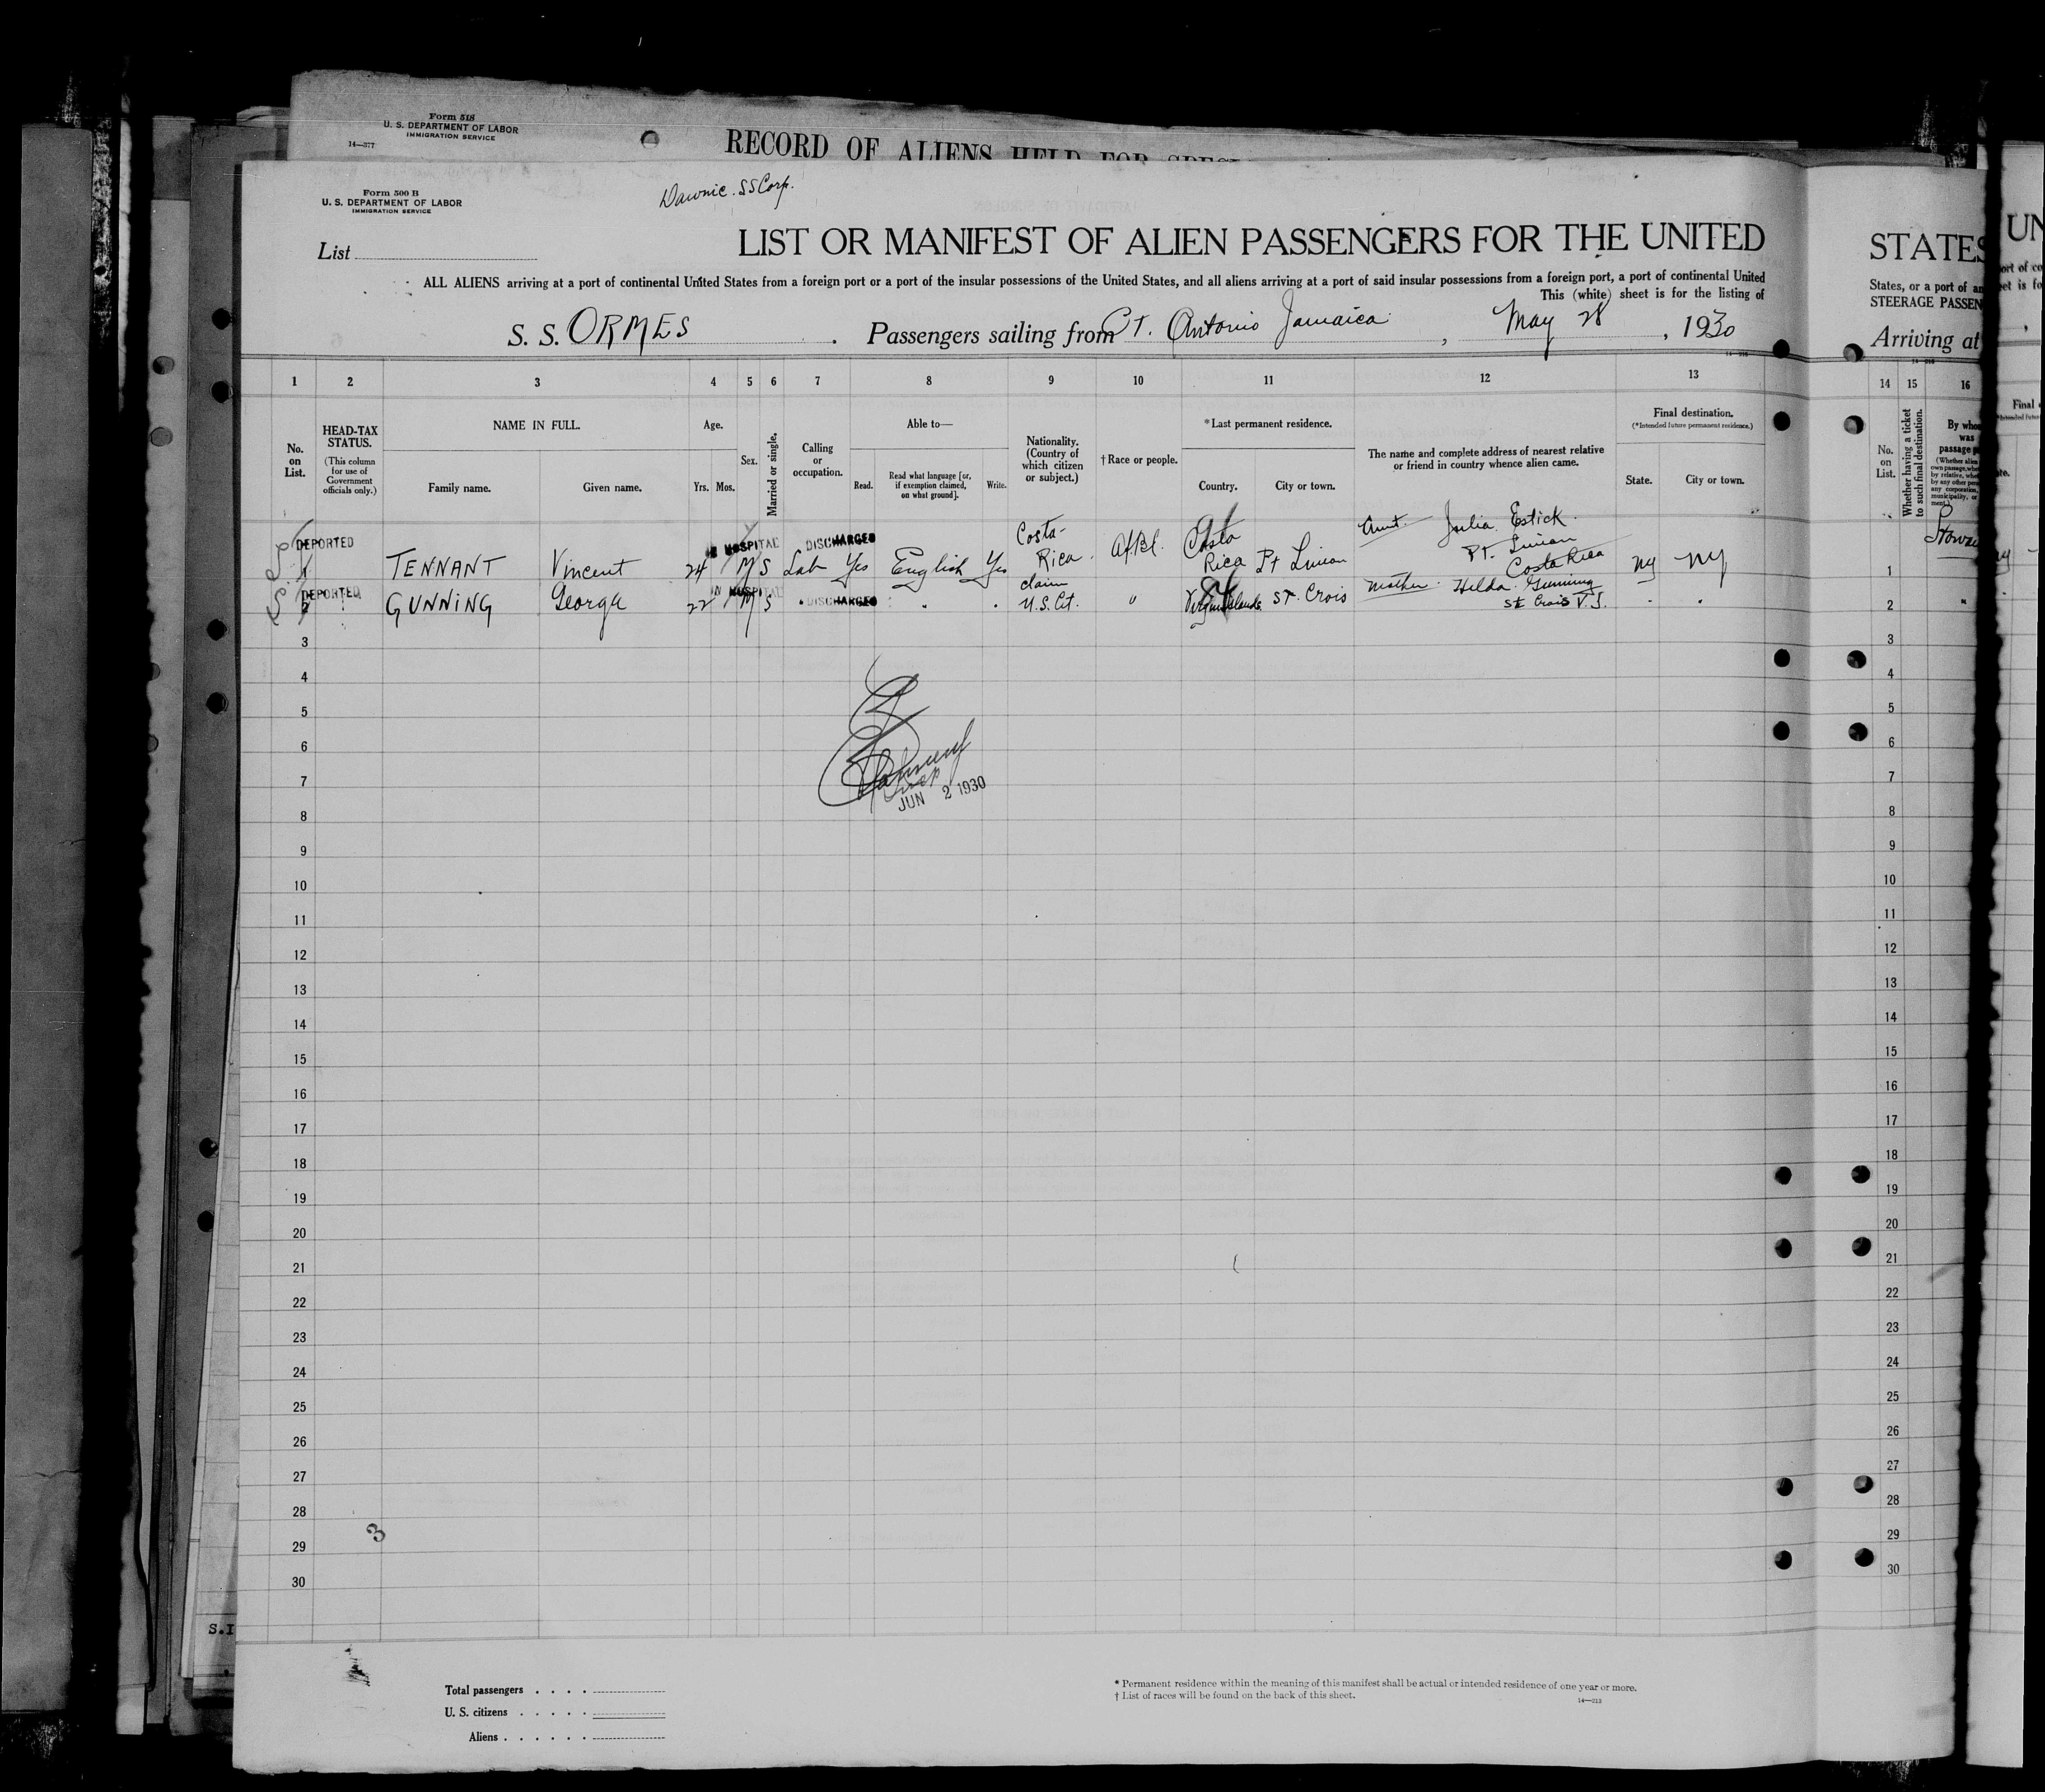 Form 518
U. S. DEPARTMENT OF LABOR
IMMIGRATION SERVICE
14—377
RECORD OF ALIENS HELD FOR
Form 500 B
U. S. DEPARTMENT OF LABOR
IMMIGRATION SERVICE
SS Corp.
List
LIST OR MANIFEST OF ALIEN PASSENGERS FOR THE UNITED
STATES
UN
ALL ALIENS arriving at a port of continental United States from a foreign port or a port of the insular possessions of the United States, and all aliens arriving at a port of said insular possessions from a foreign port, a port of continental United
States, or a port of
This (white) sheet is for the listing of
STEERAGE PASSEN
S. S. ORMES . Passengers sailing from Pt. Antonio Jamaica , May 28 , 1930
Arriving at
1 2 3 4 5 6 7 8 9 10 11 12 13
14 15 16
No. on List.
HEAD-TAX STATUS.
(This column for use of Government officials only.)
NAME IN FULL.
Family name.
Given name.
Age.
Yrs. Mos.
Sex.
Married or single.
Calling or occupation.
Able to—
Read.
Read what language [or, if exemption claimed, on what ground].
Write.
Nationality. (Country of which citizen or subject.)
†Race or people.
*Last permanent residence.
Country.
City or town.
The name and complete address of nearest relative or friend in country whence alien came.
Final destination.
(*Intended future permanent residence.)
State.
City or town.
No. on List.
Whether having a ticket to such final destination.
By whom was passage
DEPORTED IN HOSPITAL DISCHARGED
1 TENNANT Vincent 24 M S Lab Yes English Yes Costa-Rica Af.Bl. Costa Rica Pt Limon Aunt Julia Estick Pt. Limon Costa Rica NY NY
1
DEPORTED IN HOSPITAL DISCHARGED
2 GUNNING George 22 M S " " " claim U.S. Cit. " Virgin Islands St. Crois Mother Hilda Gunning St Crois V.I. " "
2 "
3 3
4 4
5 5
6 6
7 7
JUN 2 1930
8 8
9 9
10 10
11 11
12 12
13 13
14 14
15 15
16 16
17 17
18 18
19 19
20 20
21 21
22 22
23 23
24 24
25 25
26 26
27 27
28 28
3
29 29
30 30
S.I
Total passengers . . . .
U. S. citizens . . . . .
Aliens . . . . . .
* Permanent residence within the meaning of this manifest shall be actual or intended residence of one year or more.
† List of races will be found on the back of this sheet.
14—213